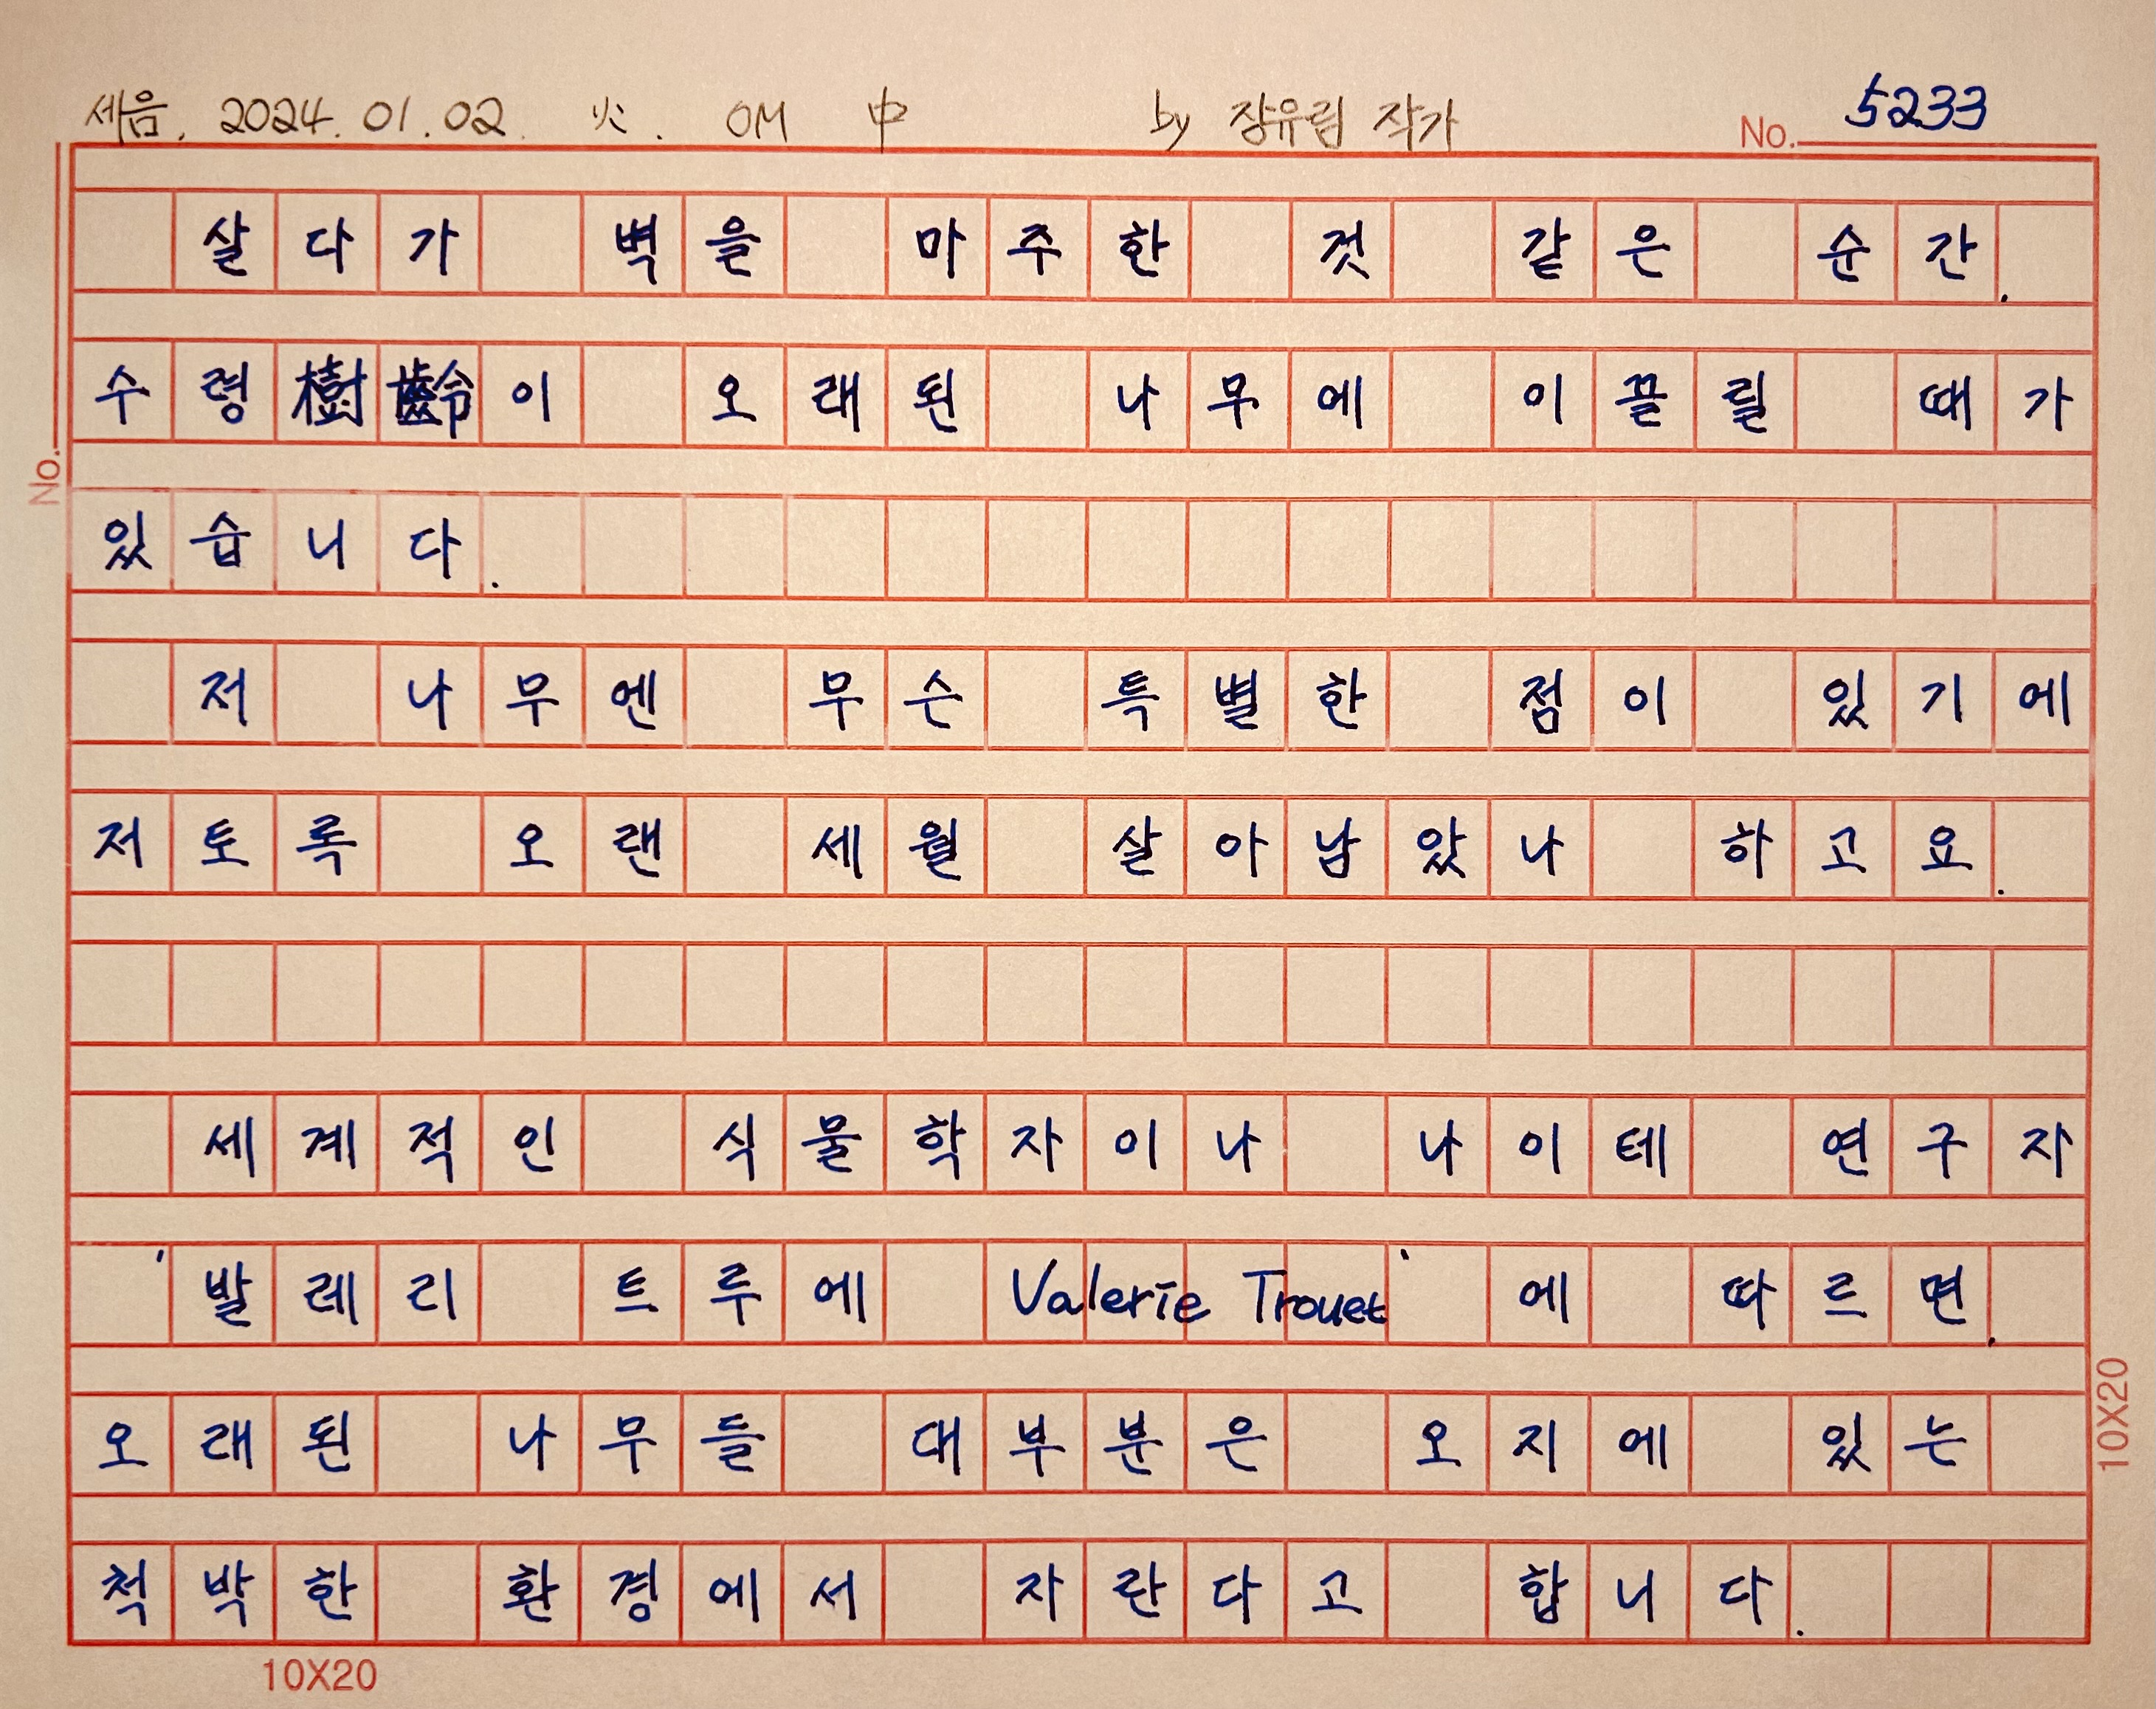 세음. 2024. 01. 02. 火. OM 中 by 장유림 작가 No. 5233
살다가 벽을 마주한 것 같은 순간.
수령樹齡이 오래된 나무에 이끌릴 때가
있습니다.
No.
저 나무엔 무슨 특별한 점이 있기에
저토록 오랜 세월 살아남았나 하고요.
세계적인 식물학자이나 나이테 연구자
'발레리 트루에 Valerie Trouet' 에 따르면,
오래된 나무들 대부분은 오지에 있는
척박한 환경에서 자란다고 합니다.
10X20
10X20